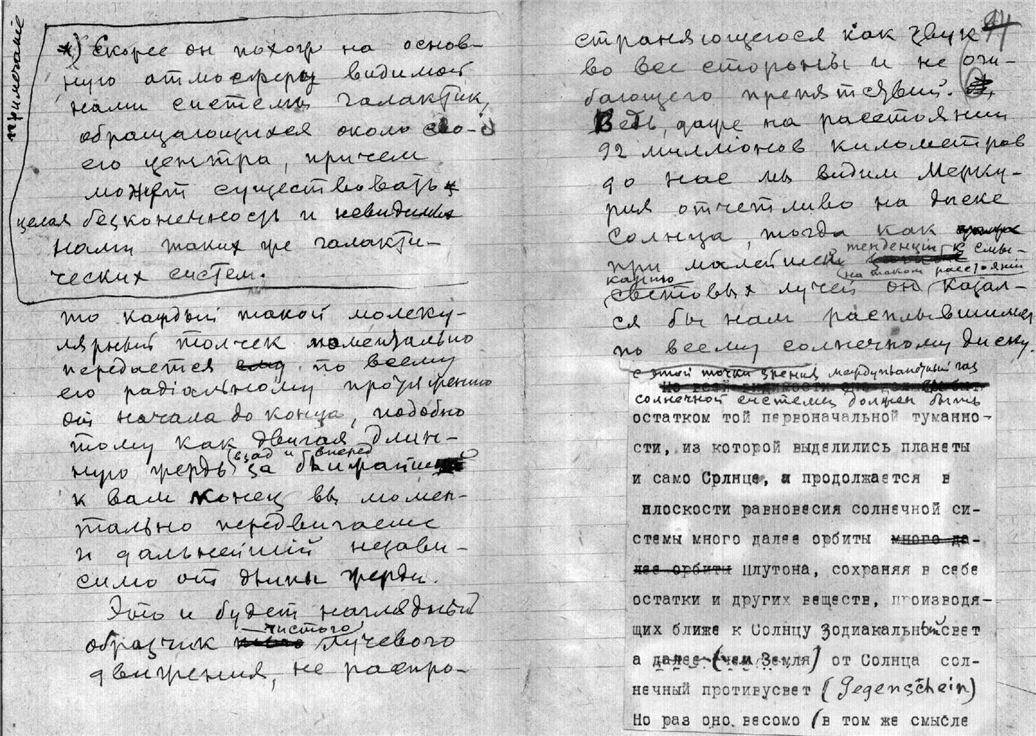 примечаніе
*) Скорее он похож на основ-
ную атмосферу видимой
нами системы галактик,
обращающихся около сво-
его центра, причем
может существовать
целая безконечность и невидимых
нами таких же галакти-
ческих систем.
то каждый такой молеку-
лярный толчек моментально
передается по всему
его радіальному протяжению
от начала до конца, подобно
тому как двигая длин-
ную жердь взад и вперед
за ближайший
к вам конец вы момен-
тально передвигаете
и дальнейшій незави-
симо от длины жерди.
Это и будет наглядный
образчик чистого лучевого
движения, не распро-
94
страняющегося как звук
во все стороны и не оги-
бающего препятствий.
Ведь, даже на расстоянии
92 миллионов километров
до нас мы видим Мерку-
рия отчетливо на диске
Солнца, тогда как
при малейшей тенденции к смы-
канию на таком расстоянии
световых лучей он казал-
ся бы нам расплывшимся
по всему солнечному диску
с этой точки зрения междупланетный газ
солнечной системы должен быть
остатком той первоначальной туманно-
сти, из которой выделились планеты
и само Солнце, и продолжается в
плоскости равновесия солнечной си-
стемы много далее орбиты много да-
лее орбиты Плутона, сохраняя в себе
остатки и других веществ, производя-
щих ближе к Солнцу Зодиакальный свет
а далее (чем Земля) от Солнца сол-
нечный противусвет (Gegenschein)
Но раз оно весомо (в том же смысле